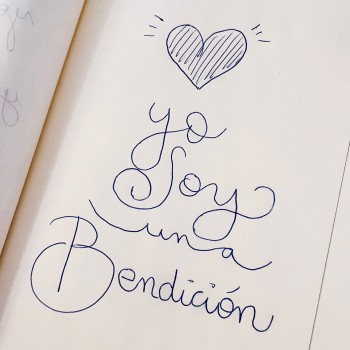 yo
Soy
una
Bendición